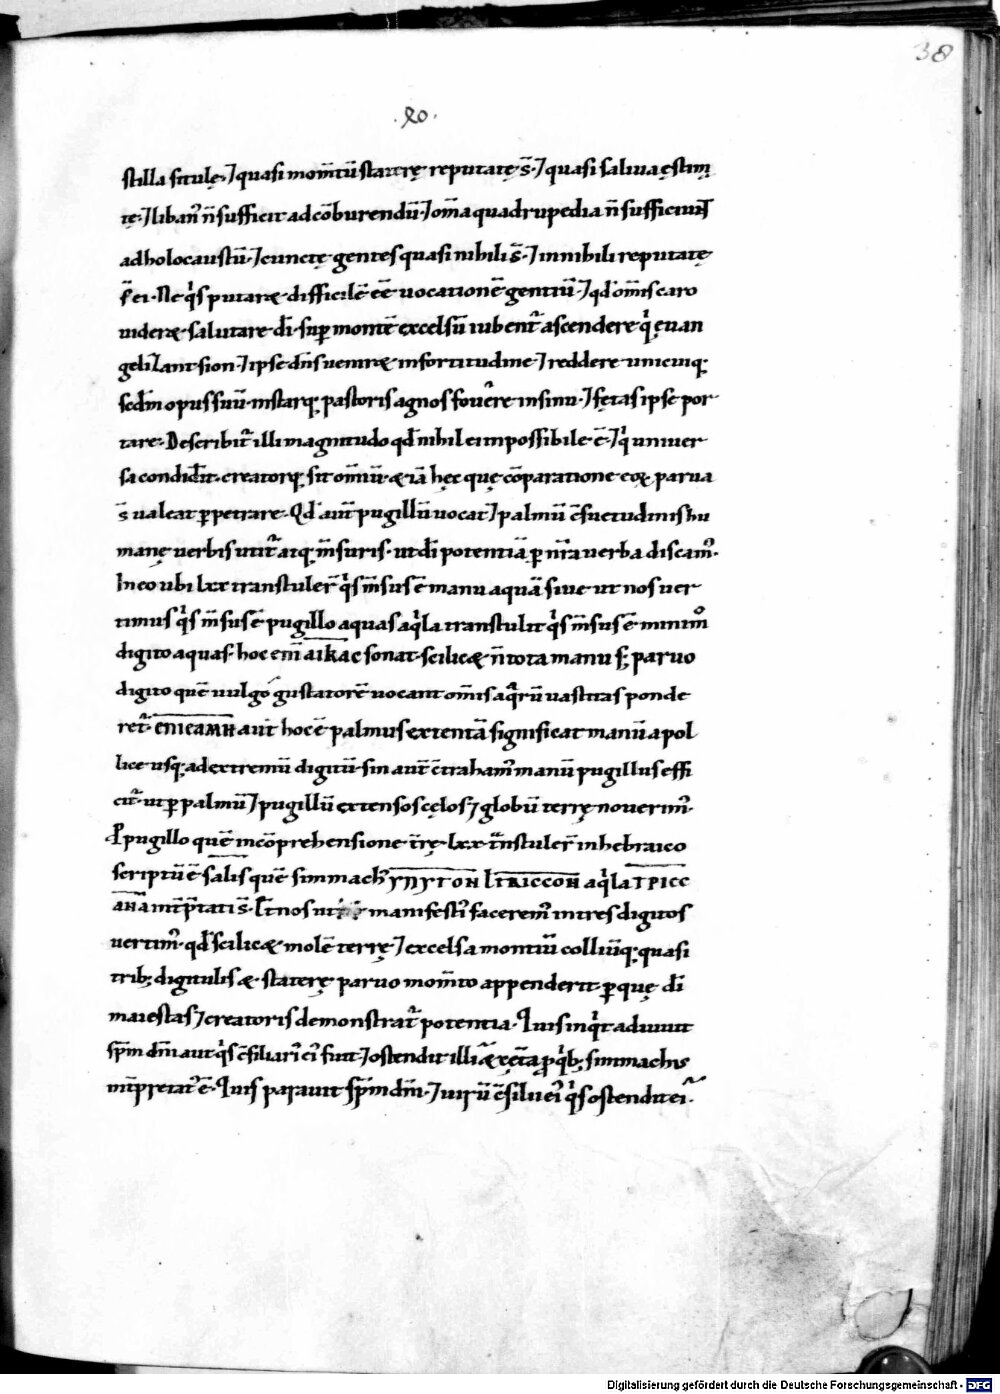 38
.xo.
stilla situlę. ⁊ quasi mom̅tu̅ staterę reputatę s̅. ⁊ quasi saliua ęstim
tę. ⁊ liban᾽ n̅ sufficit ad co̅burendu̅. ⁊ om̅a quadrupedia n̅ sufficiunt
ad holocaustu̅. ⁊ cunctę gentes quasi nihili s̅. ⁊ in nihili reputatę
s̅ ei. Ne q̍s putar& difficile̅ e̅e uocatione̅ gentiu̅. ⁊ qd̅ om̅is caro
uider& salutare di̅. sup̱ monte̅ excelsu̅ iubent᾽ ascendere q̍ ęuan
geliZant sion. ⁊ ipse dn̅s uenir& in fortitudine ⁊ reddere unicuiq;
scdm̅ opus suu̅. instarq; pastoris agnos fouere in sinu. ⁊ fętas ipse por
tare. Describit᾽ illi magnitudo qd̅ nihil ei impossibile e̅. ⁊ q̍ uniuer
sa condidit. creatorq; sit om̅iu̅. & ia̅ hęc quę co̅paratione eoꝝ parua
s̅ ualeat ꝑpetrare. Qd̅ aut̅ pugillu̅ uocat ⁊ palmu̅ c̅suetudinis hu
manę uerbis utit᾽ atq; m̅suris. ut di̅ potentia̅ ꝑ nr̅a uerba discam᾽.
In eo ubi lxx transtuler̅ q̍s m̅sus e̅ manu aqua̅ siue ut nos uer
timus q̍s m̅sus e̅ pugillo aquas aq̍la transtulit q̍s m̅sus e̅ minimo
digito aquas. hoc eni̅ ΑΙΚΑC sonat. scilic& n̅ tota manu s; paruo
digito que̅ uulgo gustatore̅ uocant om̅is aq̍ru̅ uastitas ponde
ret᾽. CΠΙCΑΜΗ aut hoc e̅ palmus extenta̅ significat manu̅ a pol
lice usq; ad extremu̅ digitu̅. sin aut̅ c̅traham᾽ manu̅ pugillus effi
cit᾽. ut ꝑ palmu̅ ⁊ pugillu̅ extensos cęlos ⁊ globu̅ terrę nouerim᾽.
P pugillo que̅ inco̅prehensione t̅rę lxx t̅nstuler̅ in hebraico
scriptu̅ e̅ salis que̅ simmach᾽ ΥΠΥΓΟΝ l̅ ΤΡΙCCΟΝ aq̍la ΤΡΙCC
ΑΝΑ int̅ꝑtati s̅. l̅ nos ut manifesti᾽ facerem᾽ in tres digitos
uertim᾽. qd̅ scilic& mole̅ terrę. ⁊ excelsa montiu̅ colliu̅q; quasi
trib; digitulis & staterę paruo mom̅to appenderit. ꝑ quę di̅
maiestas ⁊ creatoris demonstrat᾽ potentia. Quis inq̍t adiuuit
spm̅ dn̅i aut q̍s c̅siliari᾽ ei᾽ fuit. ⁊ ostendit illi & cęt̅a ꝓ q̍b; simmachus
int̅ꝑtat᾽ e̅. Quis parauit spm̅ dn̅i. ⁊ uiru̅ c̅silii ei᾽ q̍s ostendit ei.
Digitalisierung gefördert durch die Deutsche Forschungsgemeinschaft - DFG